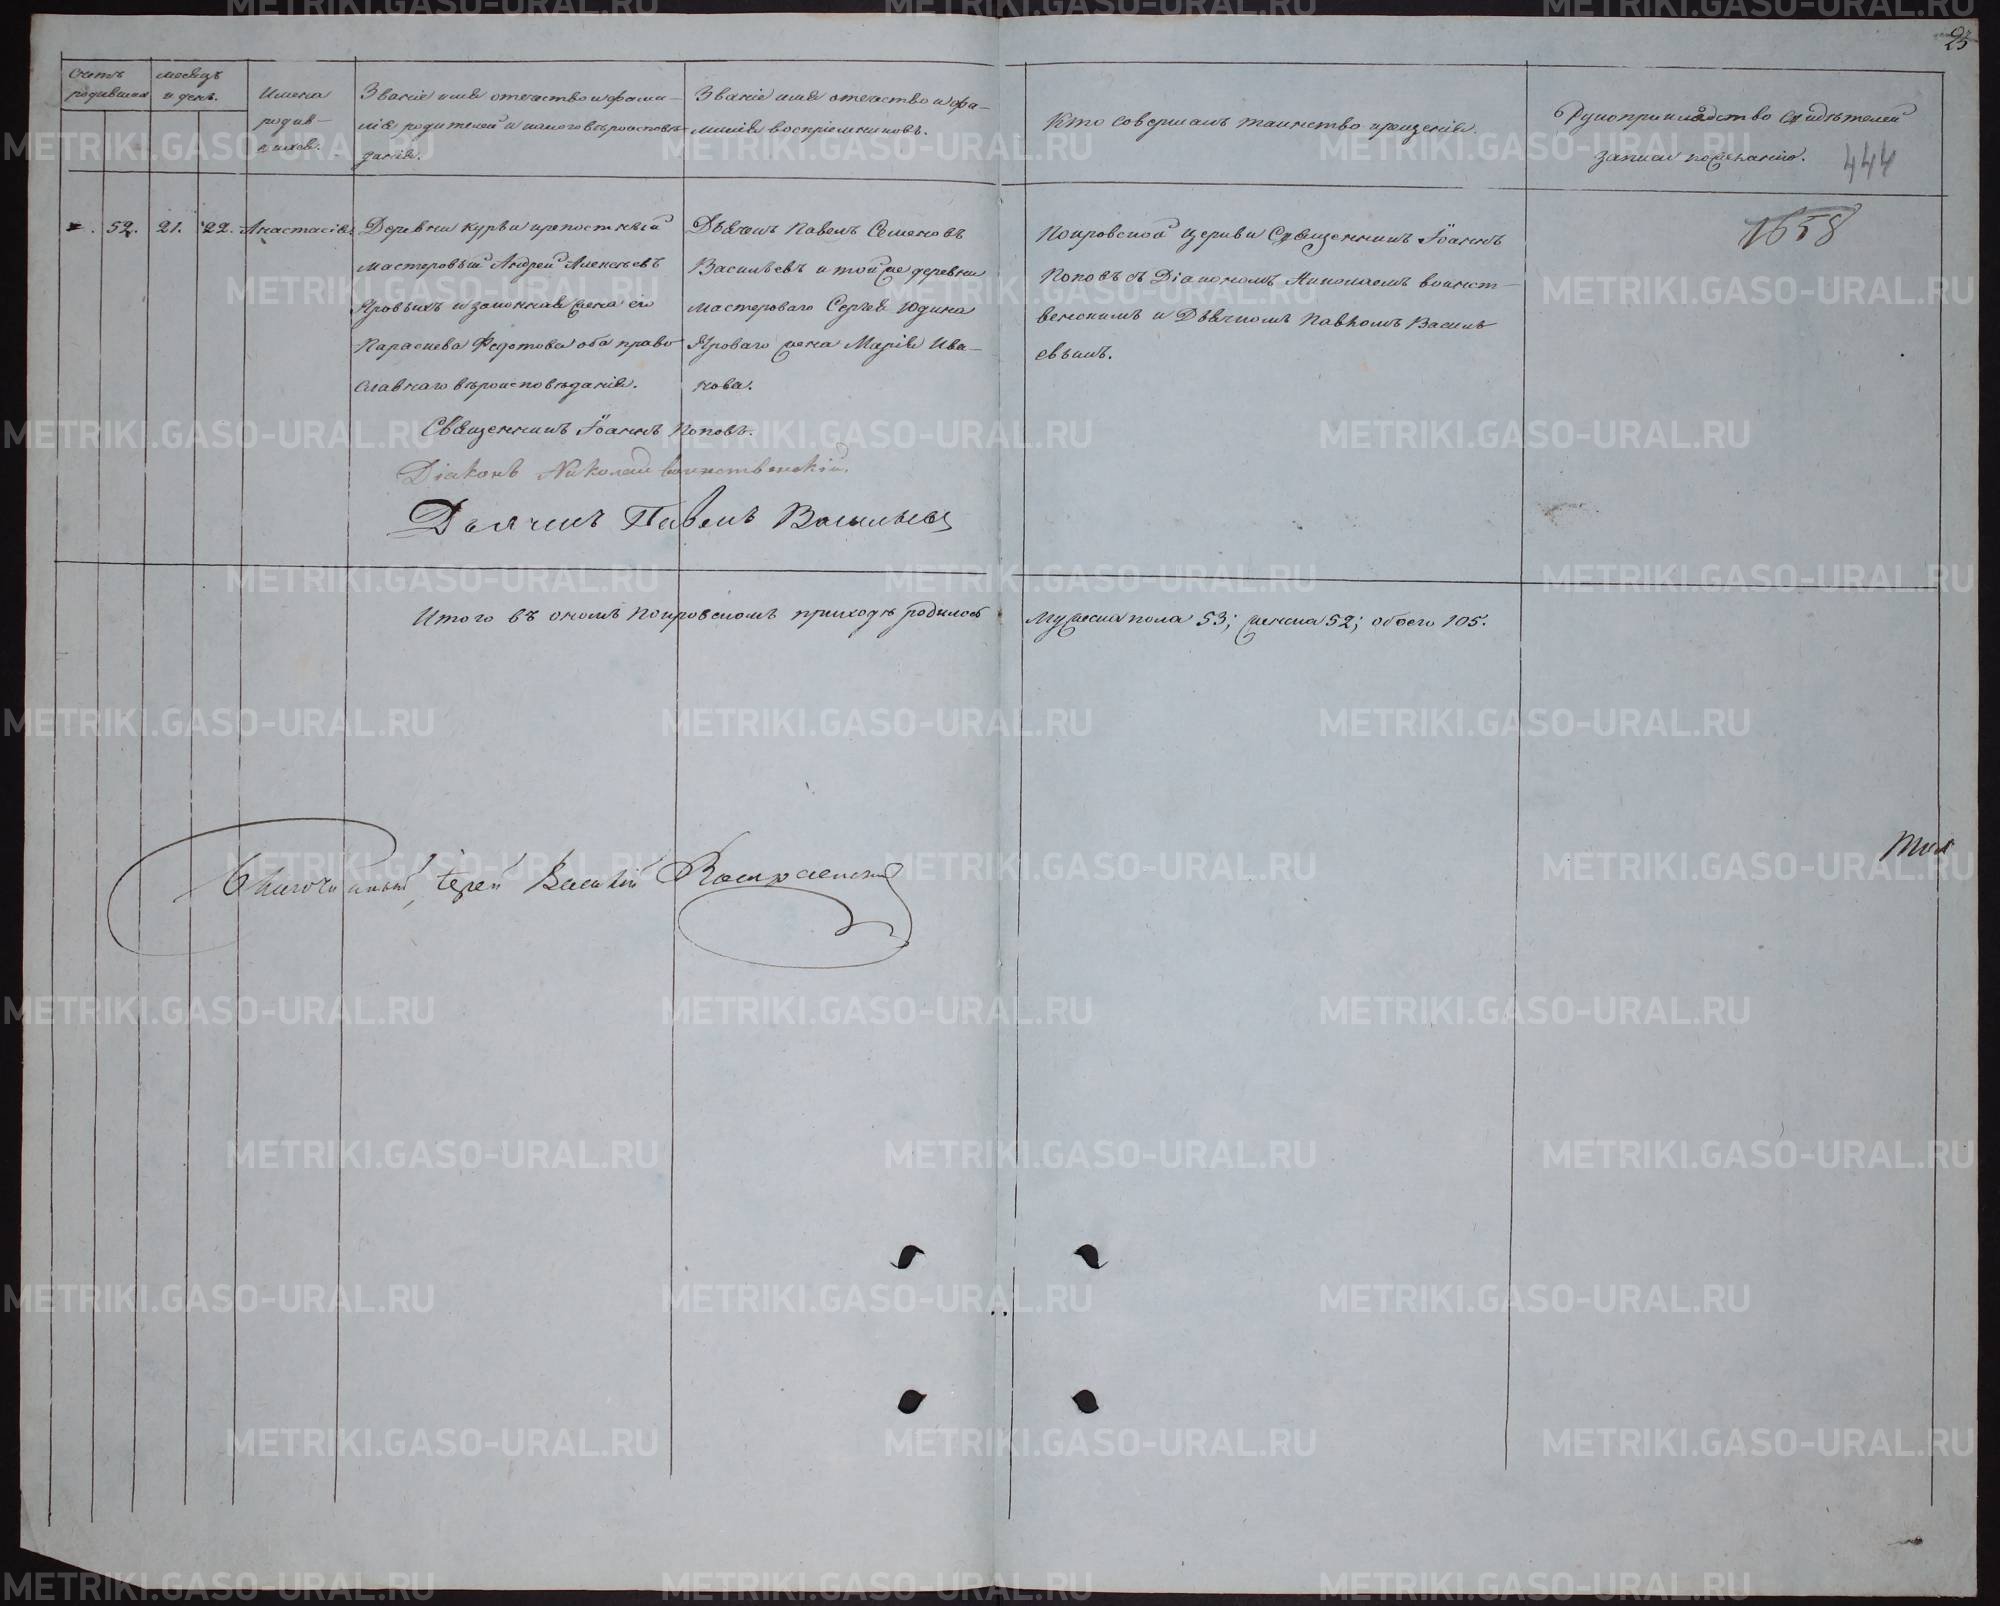 25
Счетъ родившихся
месяцъ и день.
Имена родив-шихся.
Званіе имя отечество и фами-
лія родителей и какого вѣроисповѣ-
данія.
Званіе имя отечество и фа-
милія воспріемниковъ.
Кто совершалъ таинство крещенія.
Рукоприкладство свидѣтелей
записи по желанію.
444
1658
52.
21.
22.
Анастасія.
Деревни Курьи крепостный
мастеровый Андрей Алексѣевъ
Яровыхъ и законная жена его
Параскева Федотова оба право
славнаго вѣроисповѣданія.
Дьячекъ Павелъ Семеновъ
Васильевъ и той же деревни
мастероваго Сергея Юдина
Яроваго жена Марія Ива-
нова.
Покровской церкви Священникъ Іоаннъ
Поповъ съ Діакономъ Николаемъ воинст-
венскимъ и Дьячкомъ Павломъ Василь
евымъ.
Священникъ Іоаннъ Поповъ.
Діаконъ Николай воинственскій.
Дьячекъ Павелъ Васильевъ
Итого въ ономъ Покровскомъ приходѣ родилось мужеска пола 53; женска 52; обоего 105.
Благочинный, Іерей Василій
METRIKI.GASO-URAL.RU